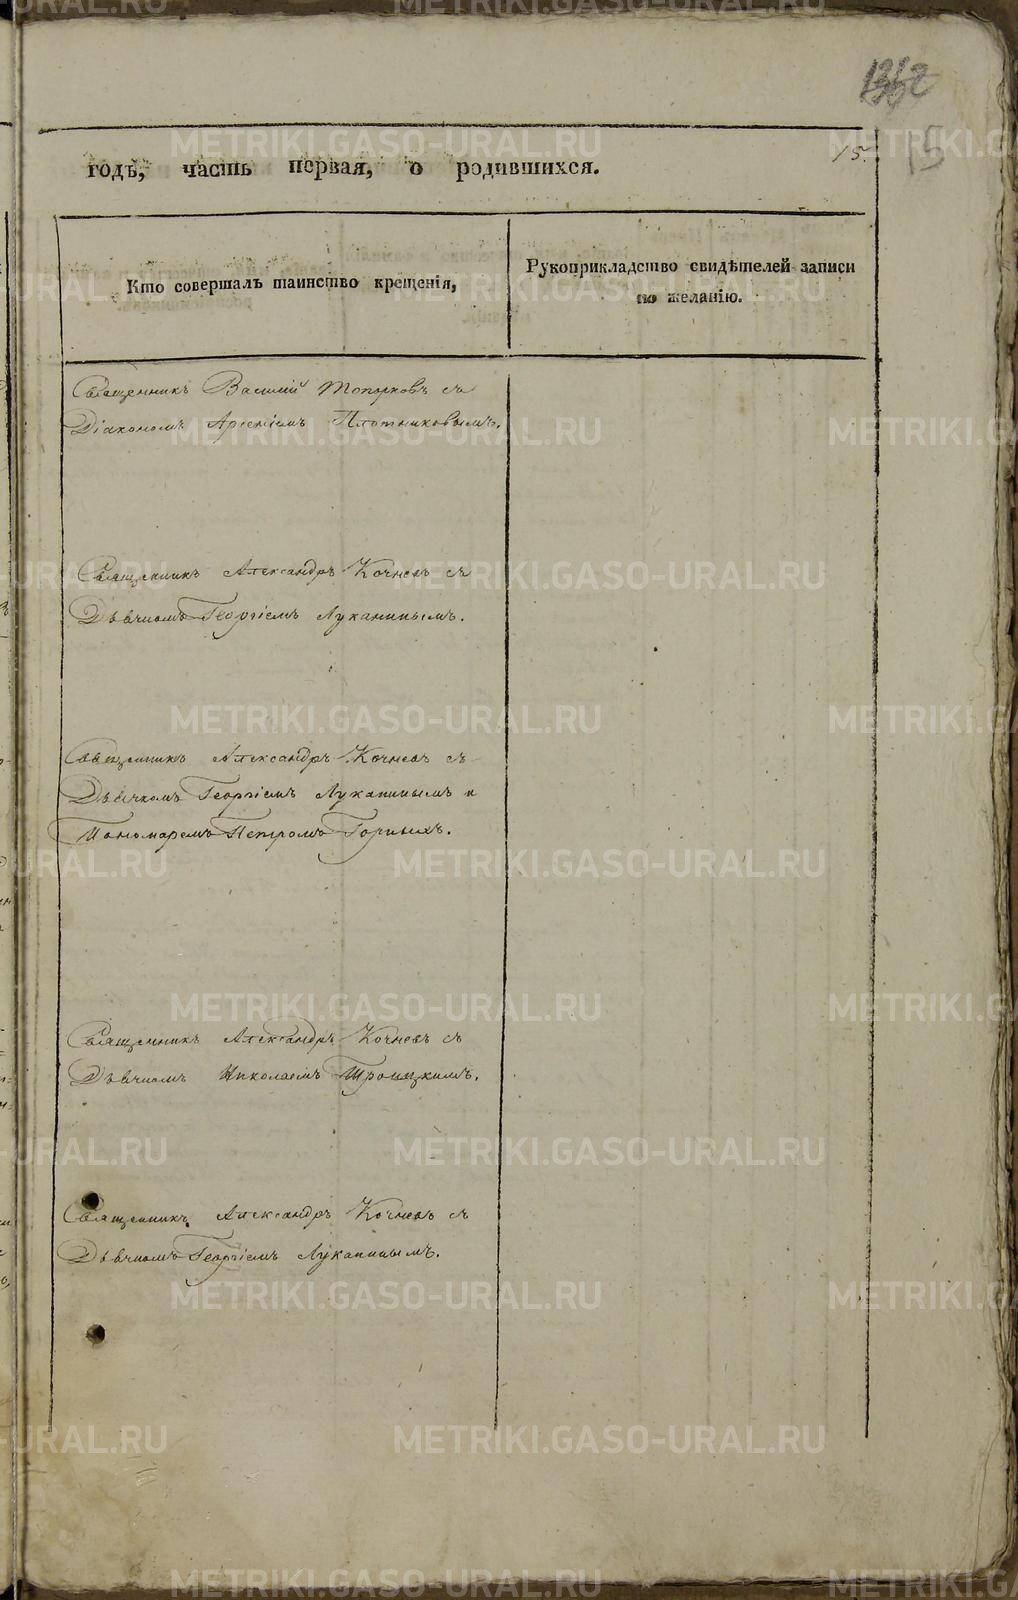 15
15.
годъ, часть первая, о родившихся.
Кто совершалъ таинство крещенія,
Рукоприкладство свидѣтелей записи
по желанію.
Священникъ Василій Топорковъ съ
Діакономъ Арсеніемъ Плотниковымъ.
Священникъ Александръ Кочневъ съ
Дьячкомъ Георгіемъ Луканинымъ.
Священникъ Александръ Кочневъ съ
Дьячкомъ Георгіемъ Луканинымъ и
Пономаремъ Петромъ Горныхъ.
Священникъ Александръ Кочневъ съ
Дьячкомъ Николаемъ Троицкимъ.
Священникъ Александръ Кочневъ съ
Дьячкомъ Георгіемъ Луканинымъ.
METRIKI.GASO-URAL.RU